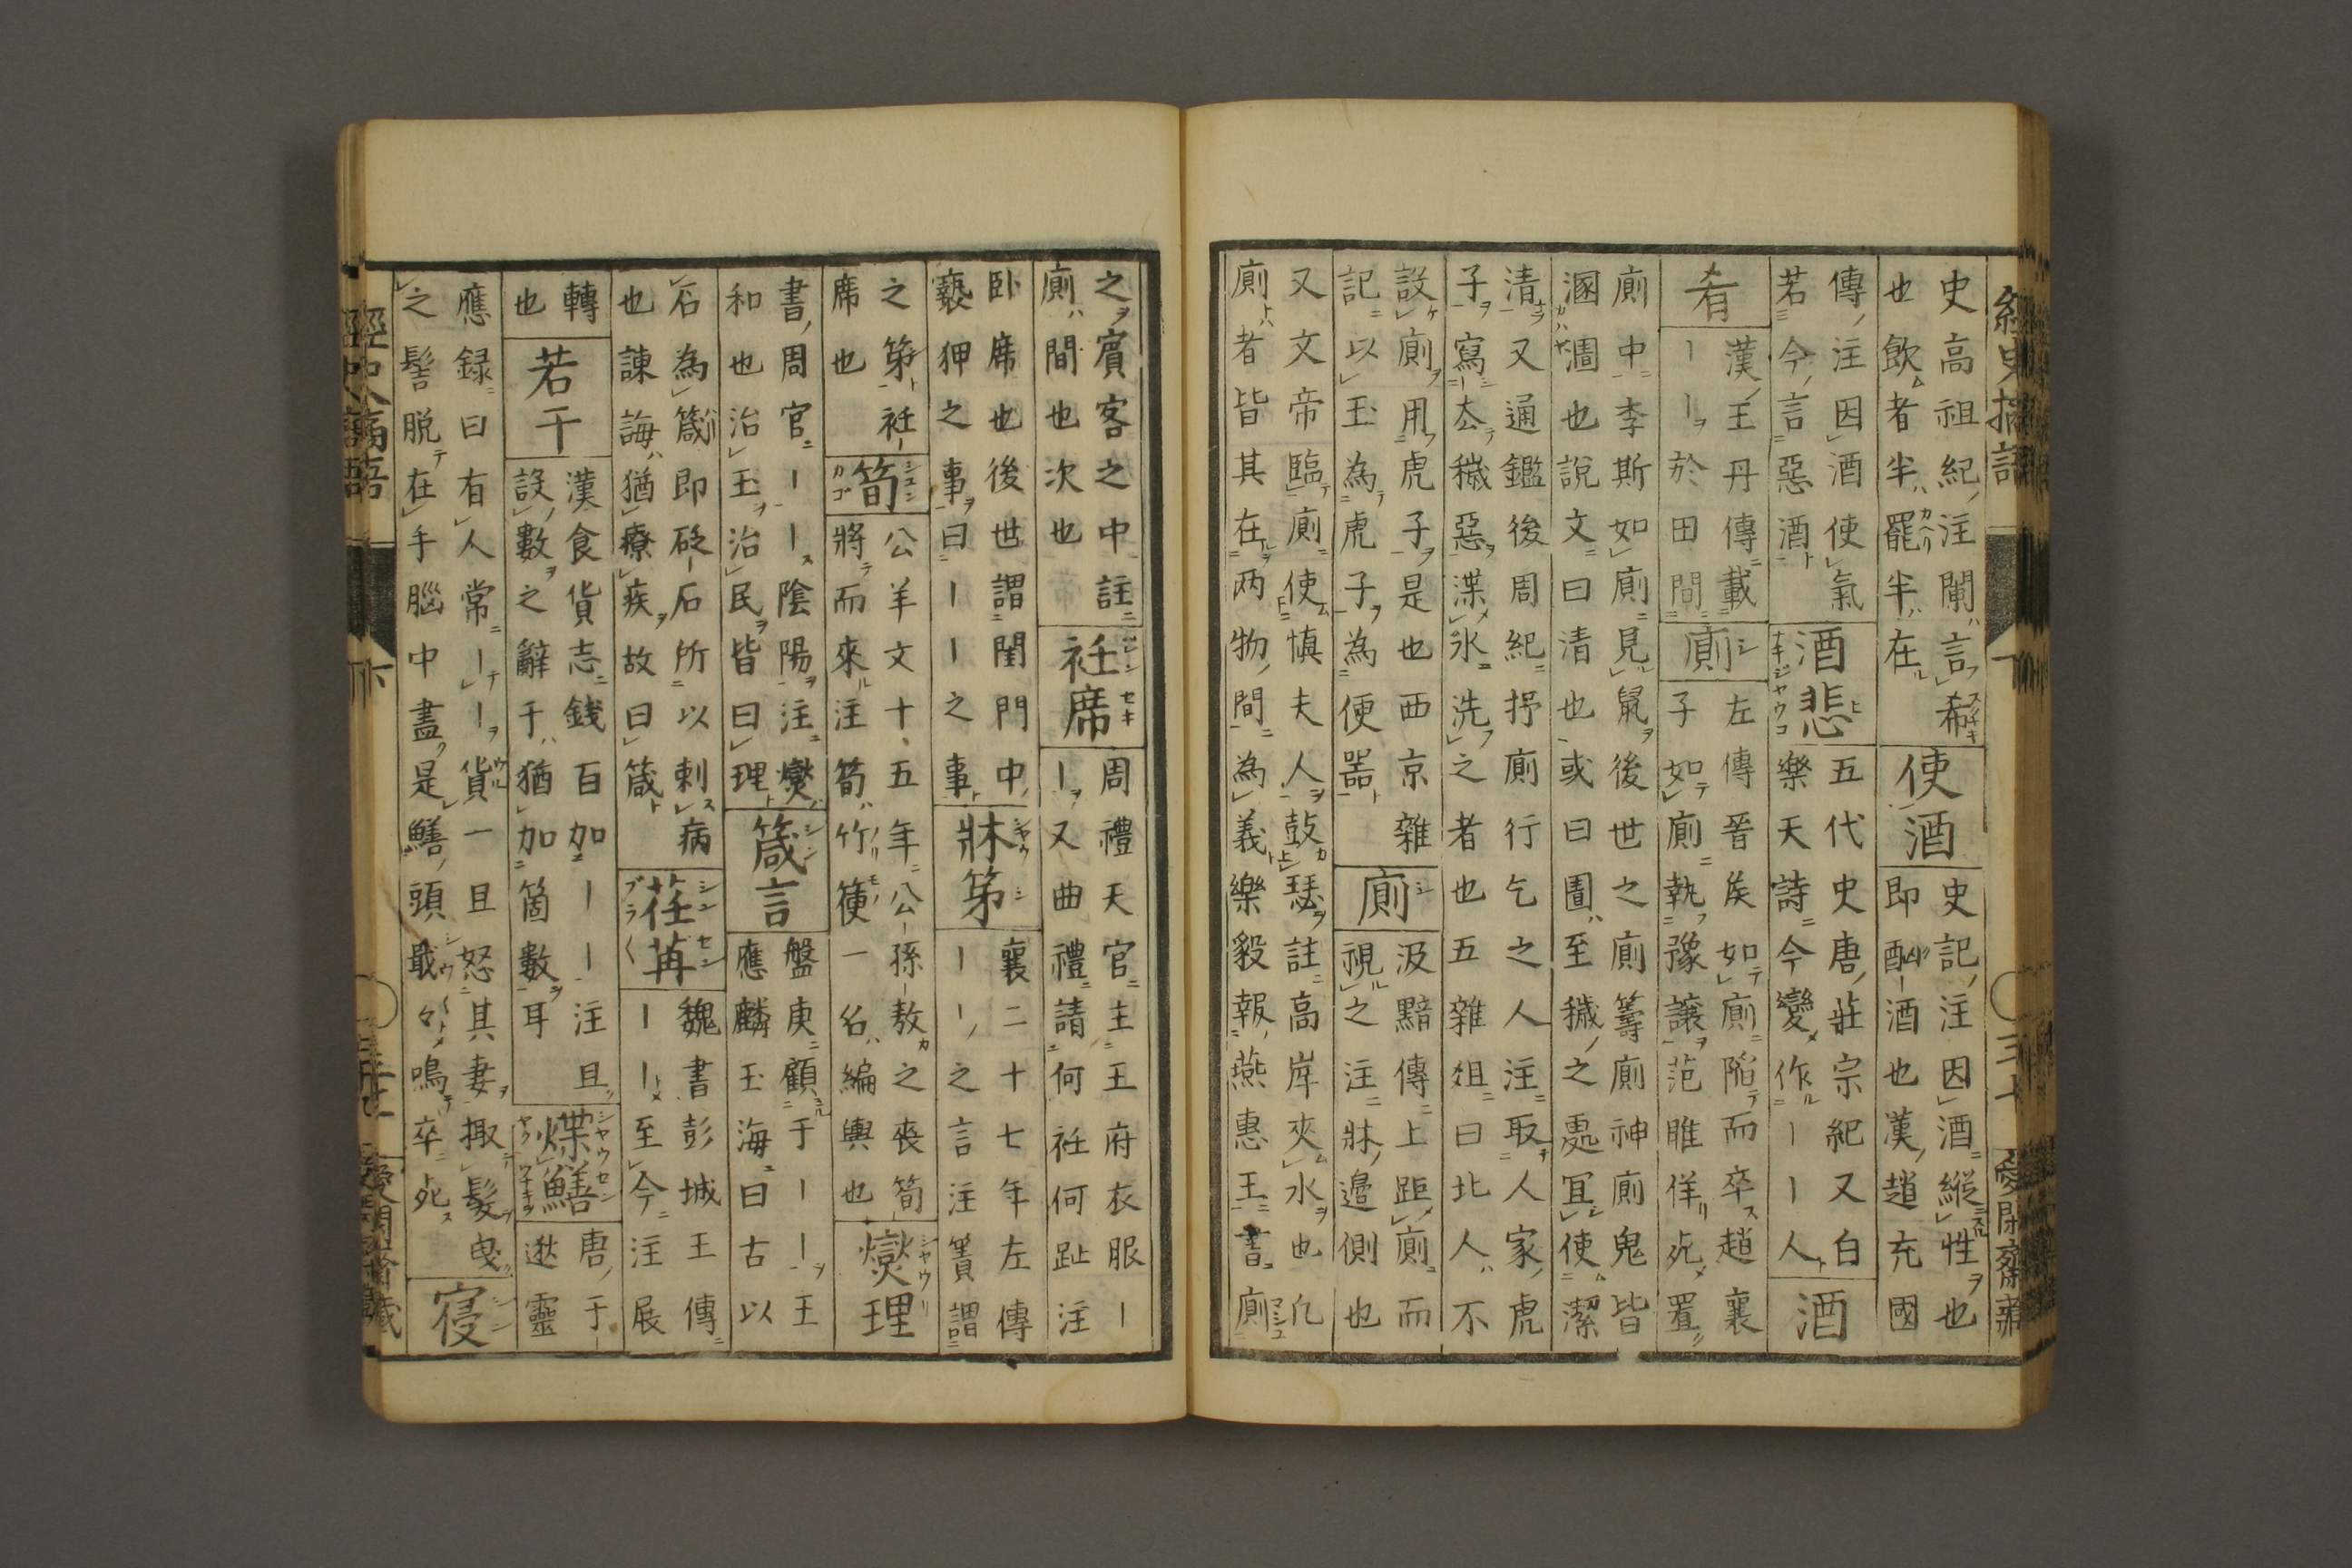 經史摘語
下
三十
愛閒齋藏
史高祖紀注闌言希
也飲者半罷半在
使酒
史記注因酒縱性也
即酗酒也漢趙充國
傳注因酒使氣
若今言惡酒
酒悲
五代史唐莊宗紀又白
樂天詩今變作ーー人
酒
肴
漢王丹傳載
ーー於田間
廁
左傳晉矦如廁陷而卒趙襄
子如廁執豫讓范睢佯死置
廁中李斯如廁見鼠後世之廁籌廁神廁鬼皆
溷涸也說文曰清也或曰圊至穢之處冝使潔
清又通鑑後周紀抒廁行乞之人注取人家虎
子寫去穢惡渫水洗之者也五雜俎曰北人不
設廁用虎子是也西京雜
記以玉為虎子為便器
廁
汲黯傳上距廁而
視之注牀邊側也
又文帝臨廁使慎夫人鼓瑟註高岸夾水也凢
廁者皆其在两物間為義樂毅報燕惠王書廁
之賓客之中註
廁間也次也
衽席
周禮天官主王府衣服ー
ー又曲禮請何衽何趾注
卧席也後世謂閨門中
褻狎之事曰ーー之事
牀笫
襄二十七年左傳
ーー之言注簀謂
之笫衽
席也
筍
公羊文十五年公孫敖之喪筍
將而來注筍竹箯一名編輿也
燮理
書周官ーー陰陽注燮
和也治玉治民皆曰理
箴言
盤庚顧于ーー王
應麟玉海曰古以
石為箴即砭石所以刺病
也諫誨猶療疾故曰箴
荏苒
魏書彭城王傳
ーー至今注展
轉
也
若干
漢食貨志錢百加ーー注且
設數之辭干猶加箇數耳
煠鱔
唐于
逖靈
應録曰有人常ーー貨一旦怒其妻掫髮曳
之髻脱在手腦中盡是鱔頭戢々鳴卒死
寝
經史摘語
下
愛閒齋藏